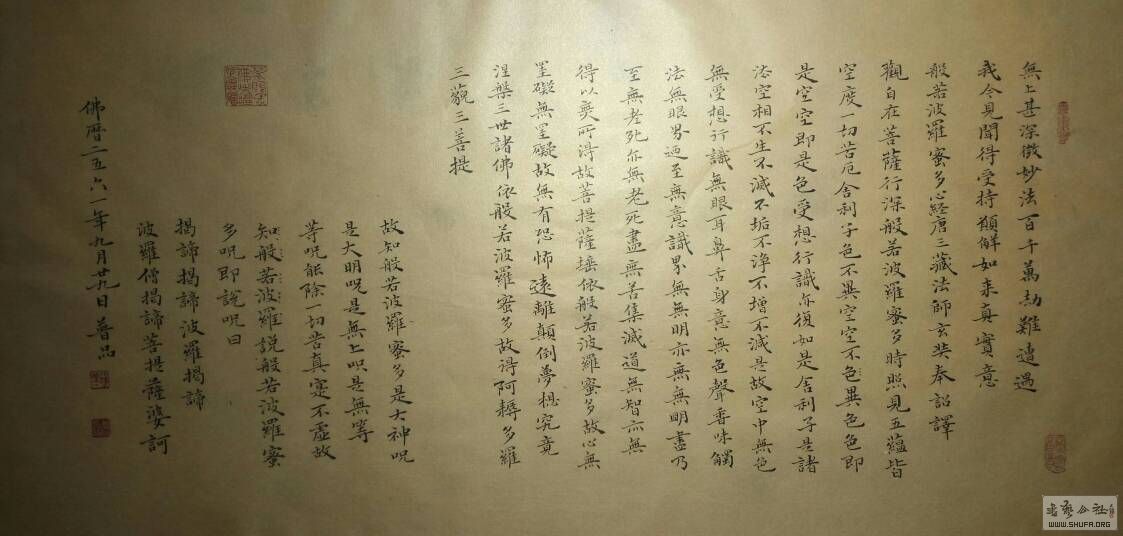 無上甚深微妙法百千萬劫難遭遇
我今見聞得受持願解如来真實意
般若波羅蜜多心經唐三藏法師玄奘奉詔譯
觀自在菩薩行深般若波羅蜜多時照見五蘊皆
空度一切苦厄舍利子色不異空空不色異色色即
是空空即是色受想行識亦復如是舍利子是諸
法空相不生不滅不垢不淨不增不減是故空中無色
無受想行識無眼耳鼻舌身意無色聲香味觸
法無眼界迺至無意識界無無明亦無無明盡乃
至無老死亦無老死盡無苦集滅道無智亦無
得以無所得故菩提薩埵依般若波羅蜜多故心無
罣礙無罣礙故無有恐怖遠離顛倒夢想究竟
涅槃三世諸佛依般若波羅蜜多故得阿耨多羅
三藐三菩提
故知般若波羅蜜多是大神呪
是大明呪是無上呪是無等
等呪能除一切苦真寔不虛故
知般若波羅說般若波羅蜜
多呪即說呪曰
揭諦揭諦波羅揭諦
波羅僧揭諦菩提薩婆訶
佛曆二五六一年九月廿九日 普品
書藝公社
WWW.SHUFA.ORG